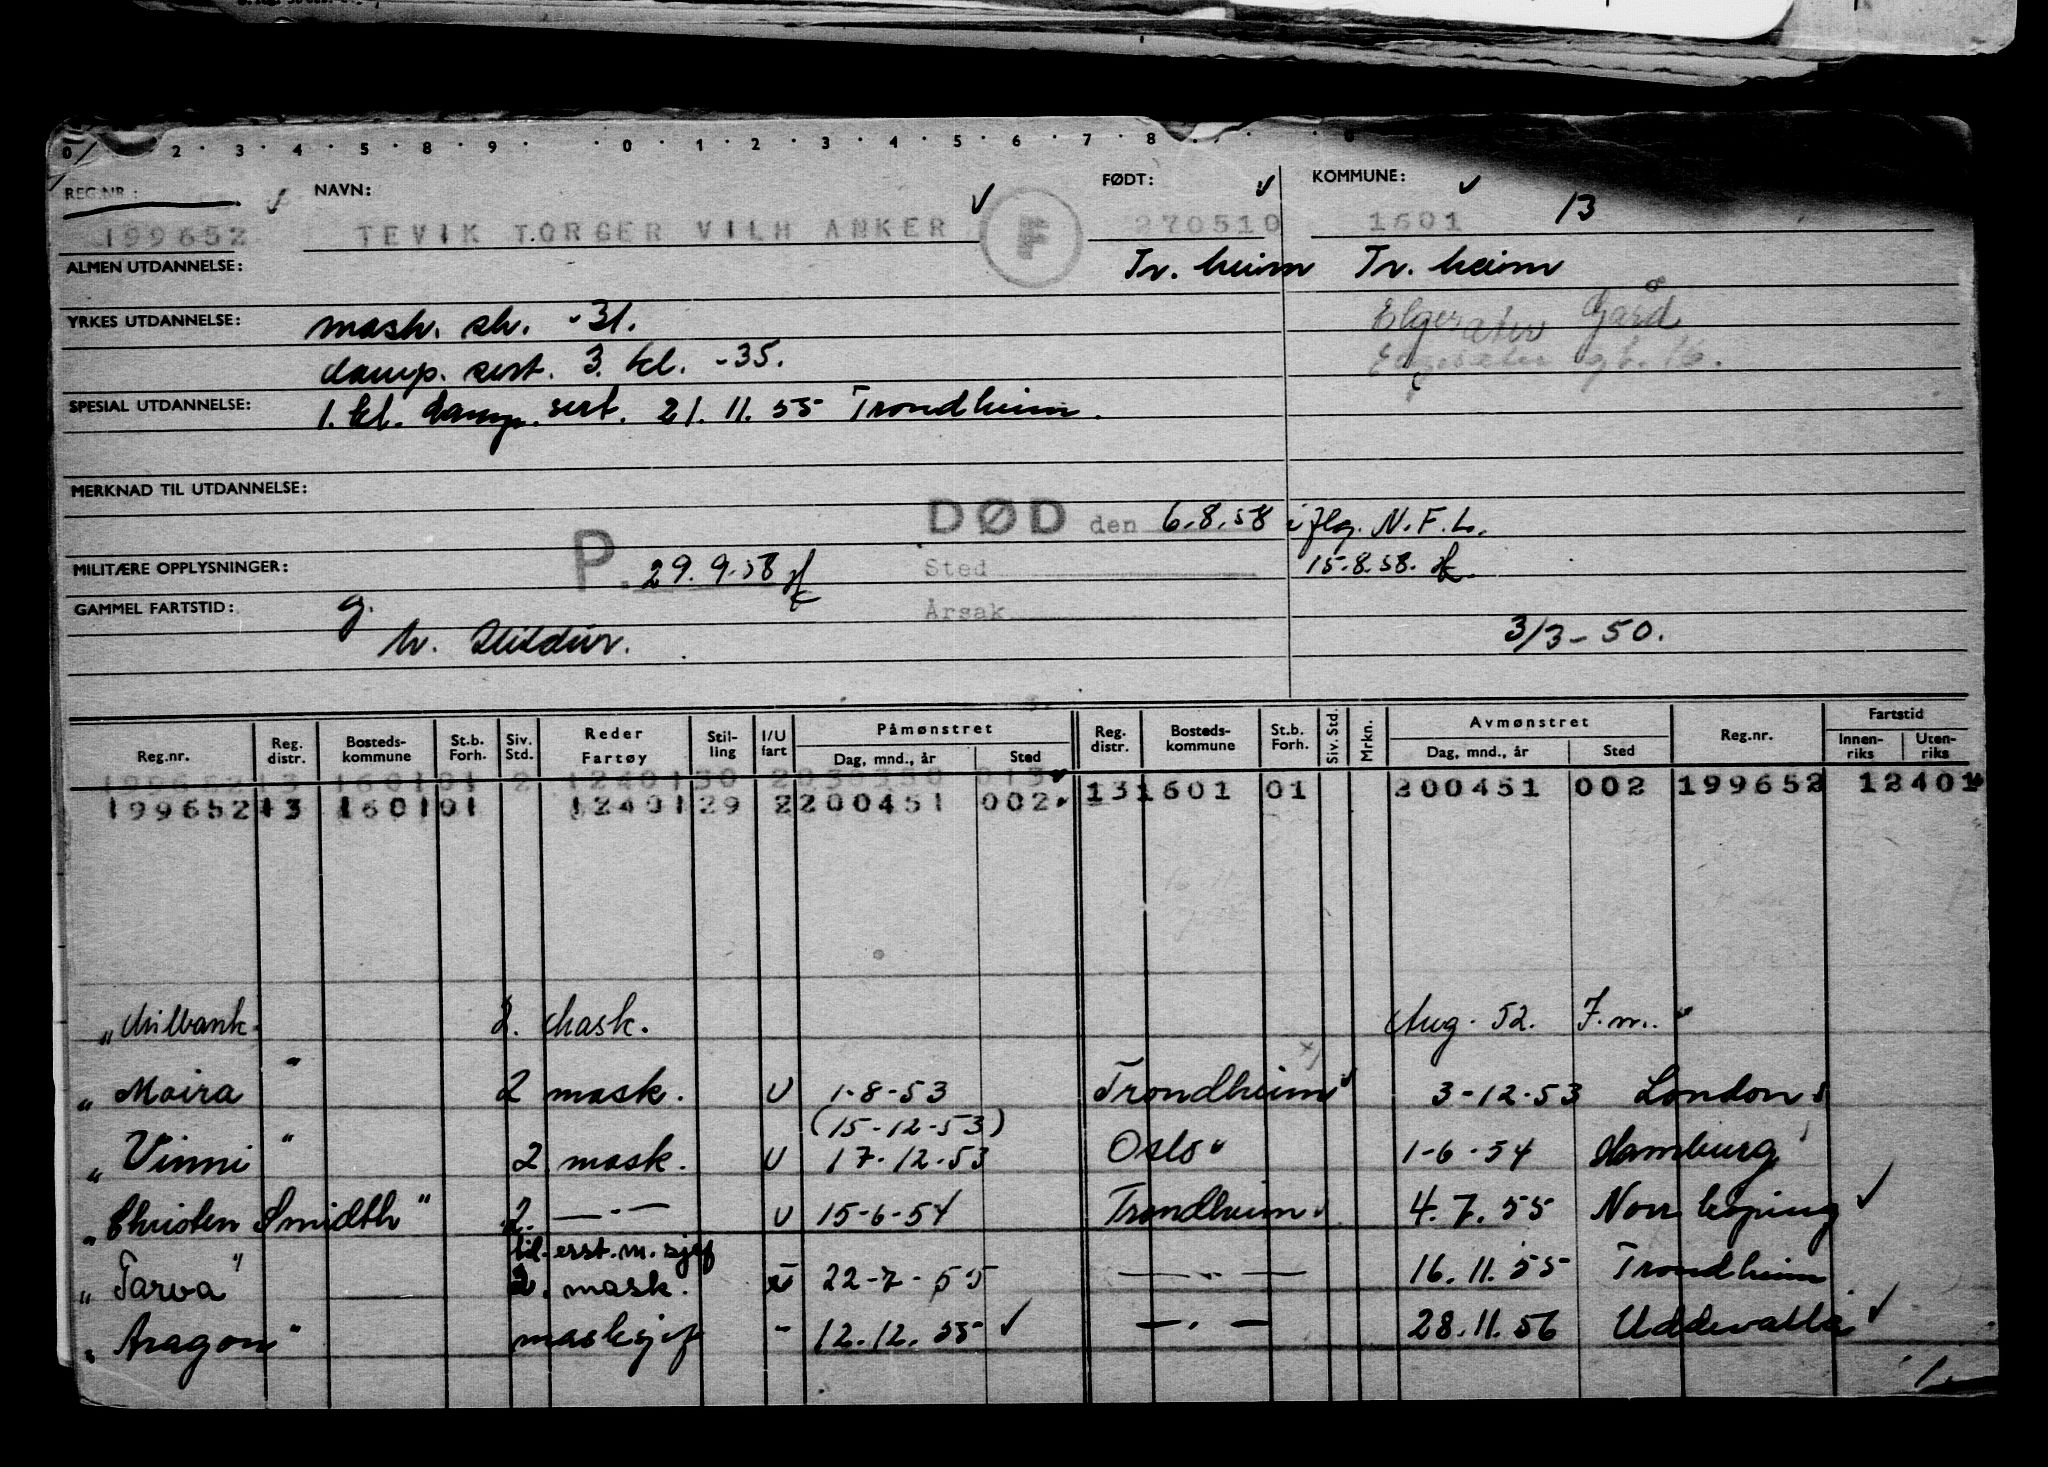 0 2 . 3 . 4 . 5 . 8 . 9 . . 0 . 1 . 2 . 3 . 4 . 5 . 6 . 7 . 8 . . . . 0
REG.NR.: NAVN: FØDT: KOMMUNE: 13
199652 TEVIK TORGER VILH ANKER F 270510 1601
ALMEN UTDANNELSE: Tr. heim Tr. heim
YRKES UTDANNELSE: mask. sk. -31. Elgesæter Gård
damp. sert. 3. kl. -35. gt. 16.
SPESIAL UTDANNELSE: 1. kl. damp. sert. 21. 11. 55 Trondheim.
MERKNAD TIL UTDANNELSE:
DØD den 6.8.58 iflg. N.F.L.
MILITÆRE OPPLYSNINGER: P. 29.9.58 Sted 15.8.58.
GAMMEL FARTSTID: g. Årsak
3/3-50.
Reg.nr. Reg. distr. Bosteds-kommune St.b. Forh. Siv. Std. Reder Fartøy Stil-ling I/U fart Påmønstret Dag, mnd., år Sted Reg. distr. Bosteds-kommune St.b. Forh. Siv. Std. Mrkn. Avmønstret Dag, mnd., år Sted Reg.nr. Fartstid Innen-riks Uten-riks
199652 13 1601 01 2 12401 30 2 030350 013 13 1601 01 200451 002 199652 12401
199652 13 1601 01 12401 29 2 200451 002
"Milbank" 2. Mask. Aug. 52. F.m.
"Moira" 2 mask. U 1-8-53 Trondheim 3-12-53 London
(15-12-53)
"Vinni" 2 mask. U 17-12-53 Oslo 1-6-54 Hamburg
"Christen Smidth" 2. —"— U 15-6-54 Trondheim 4.7.55 Norrkøping
til. erst. m. sjef
"Tarva" 2. mask. 22-7-55 —"— 16.11.55 Trondheim
"Aragon" masksjef - 12.12.55 —"— 28.11.56 Uddevalla